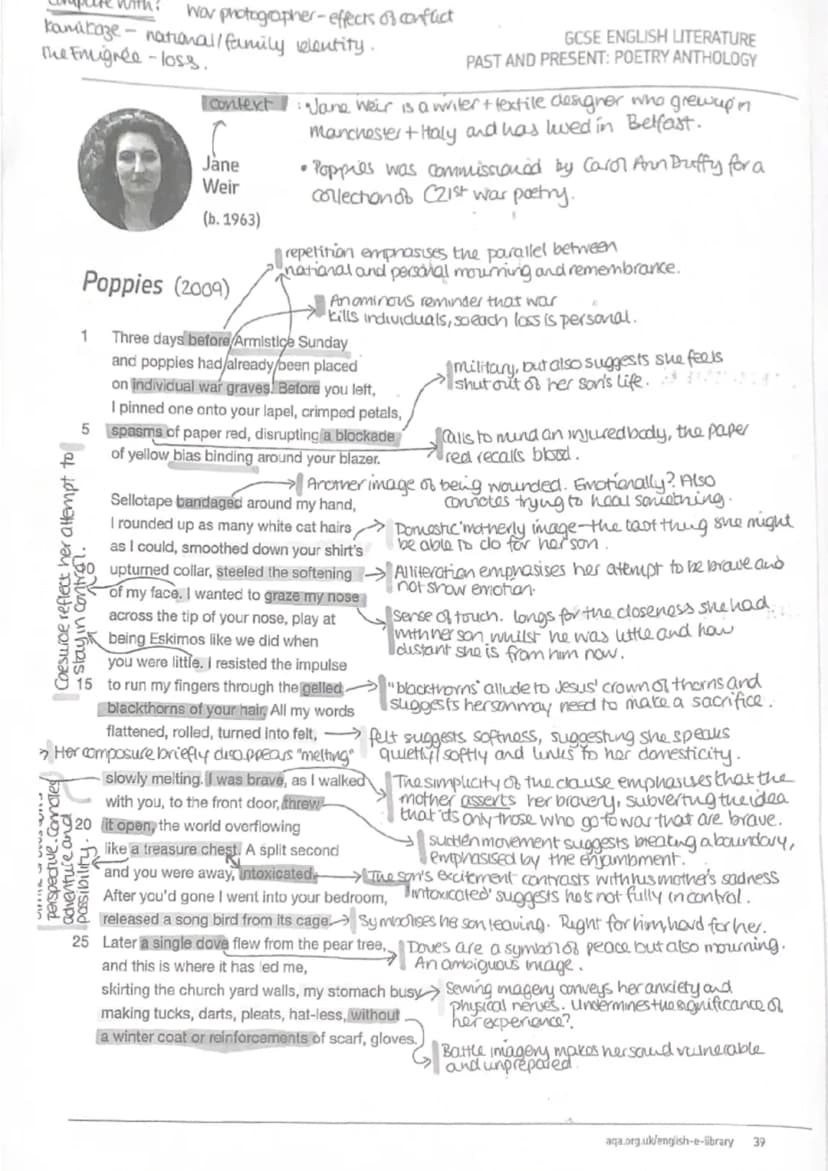 compare with:
War photographer - effects of conflict
Kamikaze - national/family identity.
The Emigrée - loss.
GCSE ENGLISH LITERATURE
PAST AND PRESENT: POETRY ANTHOLOGY
context : Jane Weir is a writer + textile designer who grew up in
Manchester + Italy and has lived in Belfast.
Jane
Weir
(b. 1963)
• Poppies was commissioned by Carol Ann Duffy for a
collection of C21st war poetry.
repetition emphasises the parallel between
national and personal mourning and remembrance.
Poppies (2009)
An ominous reminder that war
kills individuals, so each loss is personal.
1 Three days before Armistice Sunday
and poppies had already been placed
on individual war graves. Before you left,
I pinned one onto your lapel, crimped petals,
military, but also suggests she feels
shut out of her son's life.
5 spasms of paper red, disrupting a blockade
of yellow bias binding around your blazer.
Calls to mind an injured body, the paper
red recalls blood.
Another image of being wounded. Emotionally? Also
connotes trying to heal something.
Sellotape bandaged around my hand,
I rounded up as many white cat hairs
as I could, smoothed down your shirt's
Domestic 'motherly image - the last thing she might
be able to do for her son.
10 upturned collar, steeled the softening
of my face. I wanted to graze my nose
Alliteration emphasises her attempt to be brave and
not show emotion.
Caesurae reflect her attempt to
stay in control.
across the tip of your nose, play at
being Eskimos like we did when
you were little. I resisted the impulse
Sense of touch. longs for the closeness she had
with her son whilst he was little and how
distant she is from him now.
15 to run my fingers through the gelled
blackthorns of your hair. All my words
flattened, rolled, turned into felt,
"blackthorns" allude to Jesus' crown of thorns and
suggests her son may need to make a sacrifice.
felt suggests softness, suggesting she speaks
quietly/softly and links to her domesticity.
Her composure briefly disappears "melting"
slowly melting. I was brave, as I walked
with you, to the front door, threw
20 it open, the world overflowing
like a treasure chest. A split second
and you were away, intoxicated.
The simplicity of the clause emphasises that the
mother asserts her bravery, subverting the idea
that its only those who go to war that are brave.
sudden movement suggests breaking a boundary,
emphasised by the enjambment.
perspective. Conotes
adventure and
possibility.
The son's excitement contrasts with his mother's sadness
'intoxicated' suggests he's not fully in control.
After you'd gone I went into your bedroom,
released a song bird from its cage.
Symbolises her son leaving. Right for him, hard for her.
25 Later a single dove flew from the pear tree,
and this is where it has led me,
skirting the church yard walls, my stomach busy
making tucks, darts, pleats, hat-less, without
a winter coat or reinforcements of scarf, gloves.
Doves are a symbol of peace but also mourning.
An ambiguous image.
Sewing imagery conveys her anxiety and
physical nerves. Undermines the significance of
her experience?
Battle imagery makes her sound vulnerable
and unprepared
aqa.org.uk/english-e-library 39